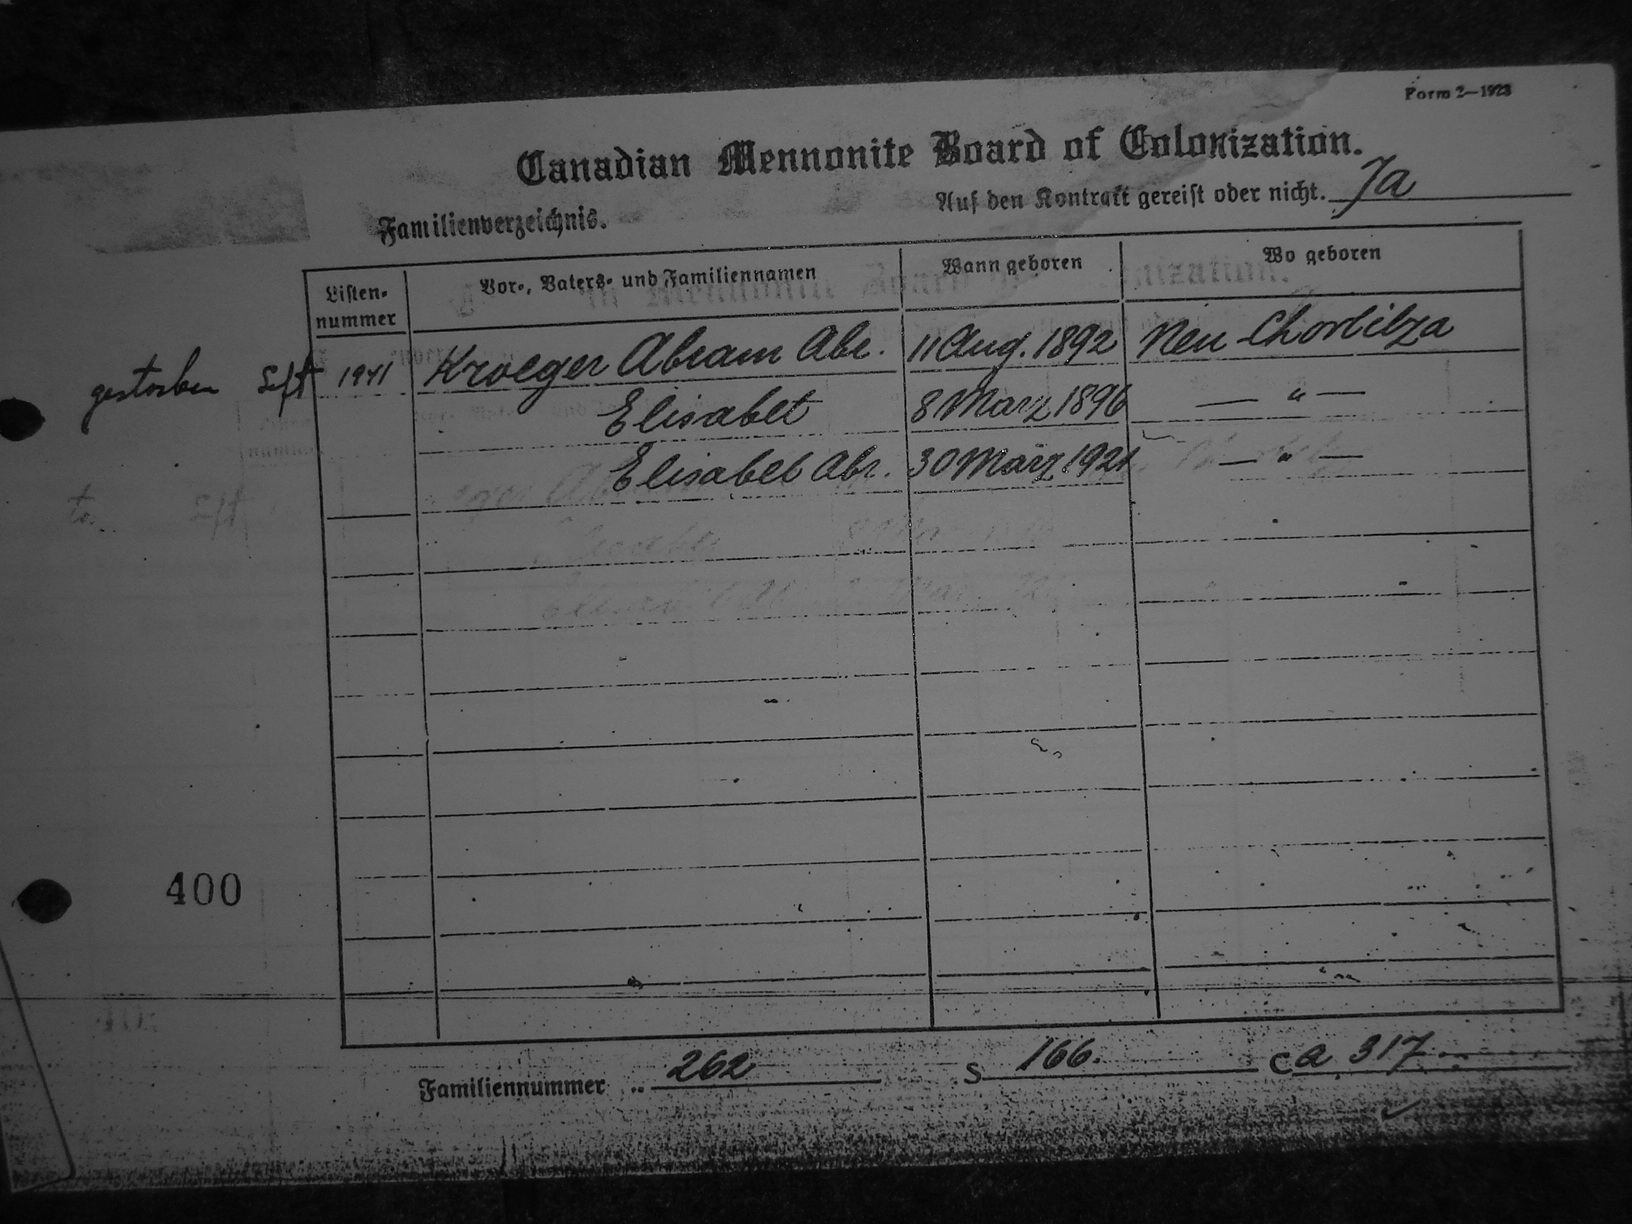 Form 2—1923
Canadian Mennonite Board of Colonization.
Auf den Kontrakt gereist oder nicht. Ja
Familienverzeichnis.
Listen-nummer Vor-, Vaters- und Familiennamen Wann geboren Wo geboren
gestorben Sept 1941 Kroeger Abram Abr. 11 Aug. 1892 Neu Chortitza
Elisabet 8 März 1896 — " —
Elisabet Abr. 30 März 1921 — " —
400
Familiennummer 262 S 166. Ca 317